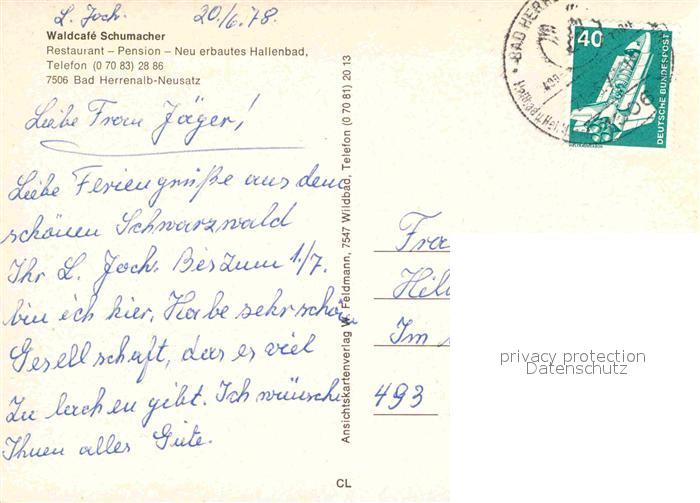 L. Joch. 20./6.78.
Waldcafé Schumacher
Restaurant – Pension – Neu erbautes Hallenbad,
Telefon (0 70 83) 28 86
7506 Bad Herrenalb-Neusatz
Liebe Frau Jäger!
Liebe Feriengrüße aus dem
schönen Schwarzwald
Ihr L. Joch. Bis zum 1./7.
bin ich hier. Habe sehr schöne
Gesellschaft, das es viel
zu lachen gibt. Ich wünsche
Ihnen alles Gute.
Ansichtskartenverlag W. Feldmann, 7547 Wildbad, Telefon (0 70 81) 20 13
CL
BAD HERRE
40
DEUTSCHE BUNDESPOST
Fra
Hil
Im
493
privacy protection
Datenschutz